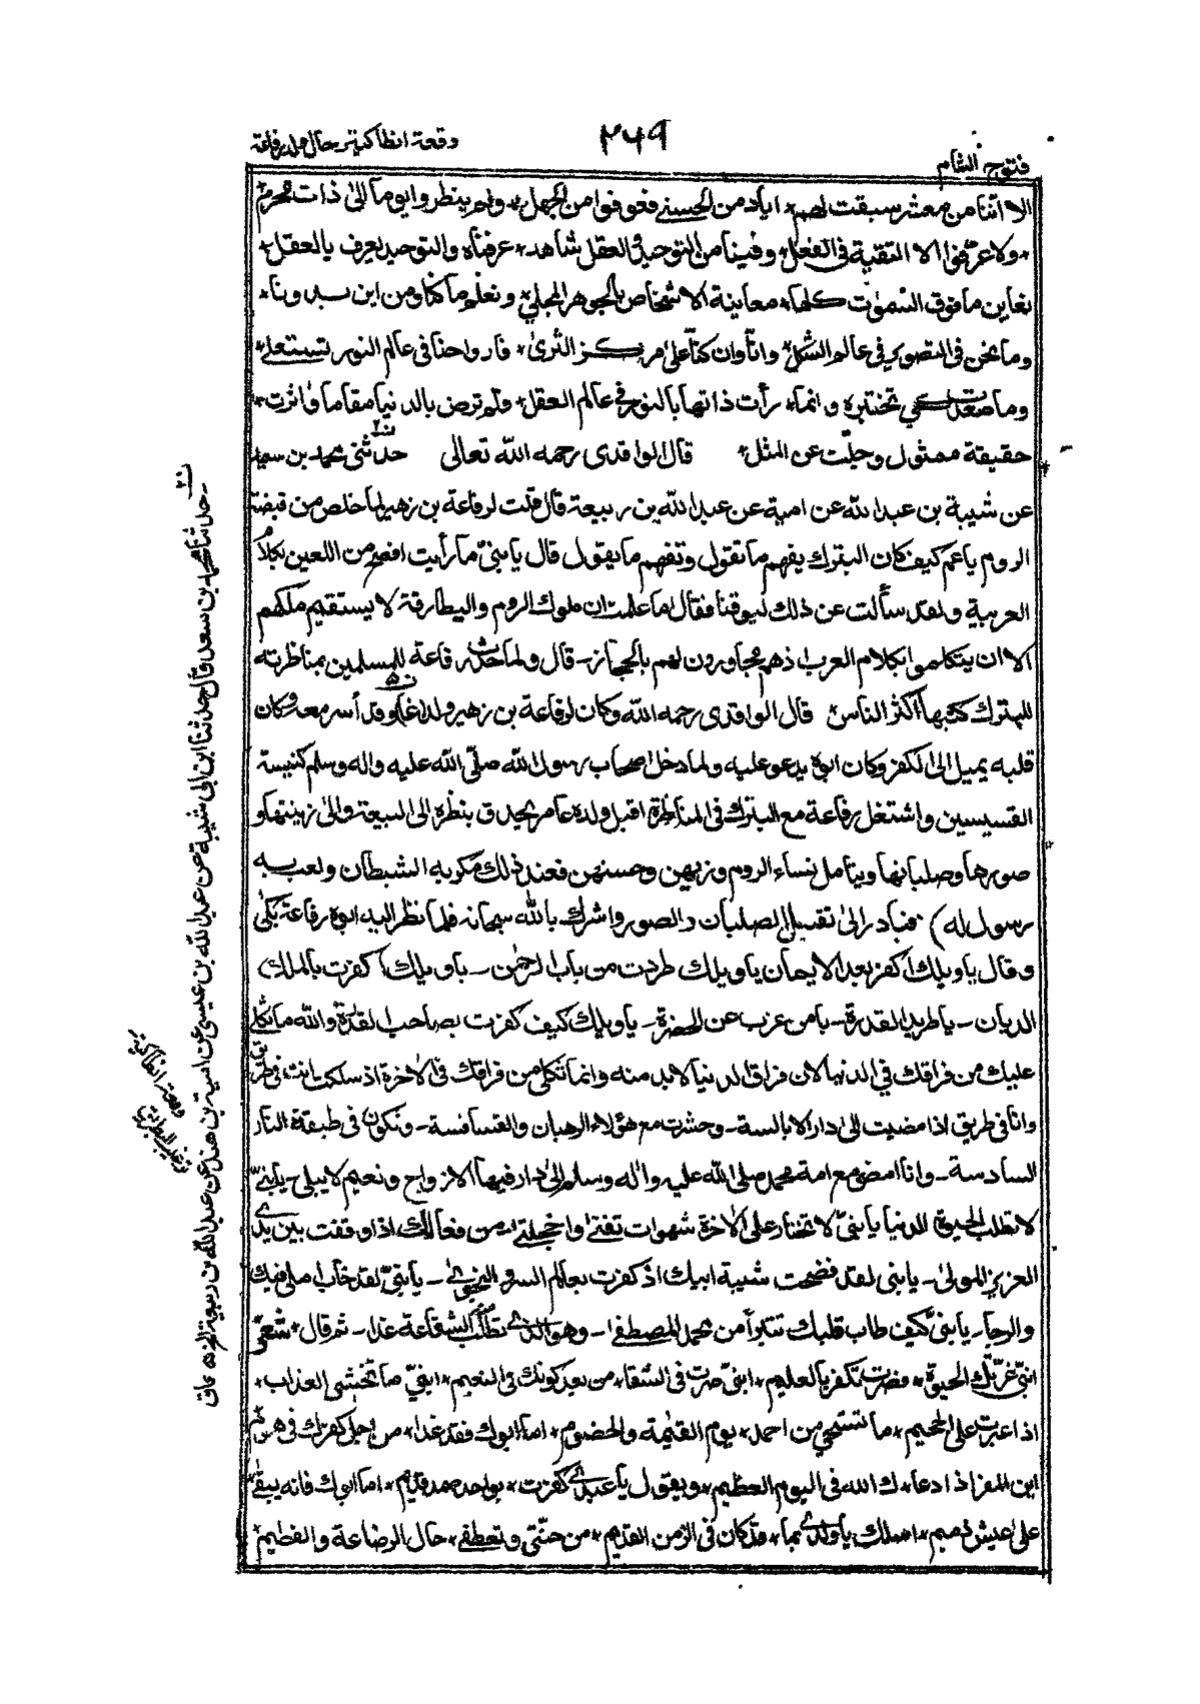 وقعة انطاكية حال ولد رفاعة
٢٦٩
فتوح الشام
الا اننا من معشر سبقت لهم * اياد من الحسنى فعوفوا من الجهل * ولم ينظروا يوما الى ذات محرم *
* ولا عرفوا الا التقية فى الفعل * وفينا من التوحيد والعقل شاهد * عرفناه والتوحيد يعرف بالعقل *
نعاين ما فوق السموت كلها * معاينة الاشخاص بالجوهر المجلي * ونعلم ما كنا ومن اين بدونا *
وما نحن فى التصوير فى عالم الشكل * وانا وان كنا على مركز الثرى * فارواحنا فى عالم النور تستعلى *
وما صعدت كي تختبره وانما * رأت ذاتها بالنور فى عالم العقل * ولم ترض بالدنيا مقاما واثرت *
حقيقة ممثول وجلت عن المثل * قال الواقدى رحمه الله تعالى حدثنى محمد بن سعيد
عن شيبة بن عبد الله عن امية عن عبد الله بن ربيعة قال قلت لرفاعة بن زهير لما خلص من قبضة
الروم يا عم كيف كان البترك يفهم ما تقول وتفهم ما يقول قال يا بنىّ ما رأيت افصح من اللعين بكلام
العربية ولقد سألت عن ذلك ليوقنا فقال اما علمت ان ملوك الروم والبطارقة لا يستقيم ملكهم
الا ان يتكلموا بكلام العرب اذ هم مجاورون لهم بالحجاز - قال ولما حدث رفاعة للمسلمين بمناظرته
للبترك كتبها اكثر الناس * قال الواقدى رحمه الله وكان لرفاعة بن زهير ولد وقد أسر معه وكان
قلبه يميل الى الكفر وكان ابوه يدعو عليه ولما دخل اصحاب رسول الله صلّى الله عليه واله وسلم كنيسة
القسيسين واشتغل رفاعة مع البترك فى المناظرة اقبل ولده عامر يحدق بنظره الى البيعة والى زينتها و
صورها وصلبانها ويتامل نساء الروم وزيهن وحسنهن فعند ذلك مكر به الشيطان ولعب به
رسول له) فبادر الى تقبيل الصلبان والصور واشرك بالله سبحانه فلما نظر اليه ابوه رفاعة بكى
وقال ياويلك اكفر بعد الايمان ياويلك طردت من باب الرحمن - ياويلك اكفرت بالملك
الديان - ياطريد القدرة - يا من عزب عن الحضرة - ياويلك كيف كفرت بصاحب القدرة والله ما بكائى
عليك من فراقك في الدنيا لان فراق الدنيا لابد منه وانما بكائى من فراقك فى الاخرة اذ سلكت انت فى طريق
وانا فى طريق اذا مضيت الى دار الابالسة - وحشرت مع هؤلاء الرهبان والقسافسة - وتكون فى طبقة النار
السادسة - وانا امضى مع امة محمد صلى الله عليه واله وسلم الى دار فيها الازواج ونعيم لا يبلى - يا بنىّ
لا تطلب الحيوة الدنيا يا بنىّ لا تختار على الاخرة شهوات تفنى واخجلتى من فعالك اذا وقفت بين يدى
العزيز المولى - يا بنى لقد فضحت شيبة ابيك اذ كفرت بعالم السر والنجوى - يا بنىّ لقد خاب املى فيك
والرجا - يا بنىّ كيف طاب قلبك تتبرأ من محمد المصطفى - وهو الذى تطلب الشفاعة غدا - ثم قال * شعر *
ابنىّ غرّتك الحيوة * فصرت تكفر بالعليم * ابنىّ صرت فى الشقا * من بعد كونك فى النعيم * ابنيّ ما تخشى العذاب *
اذا عبرت على الجحيم * ما تستحي من احمد * يوم القيمة والخصوم * اما ابوك فقد غدا * من اجل كفرك فى هموم *
اين المفر اذا دعاك الله فى اليوم العظيم * ويقول يا عبدى كفرت * بواحد صمد قديم * اما ابوك فانه يبقى *
على عيش ذميم * اسئلك يا ولدى بما * قد كان فى الزمن القديم * من حنّتى وتعطفى * حال الرضاعة والفطيم *
حدثنا محمد بن سعد قال حدثنا ابن ابى شيبة عن عبد الله بن عيسى عن امية بن هند عن عبد الله بن ربيعة
وقعة انطاكية